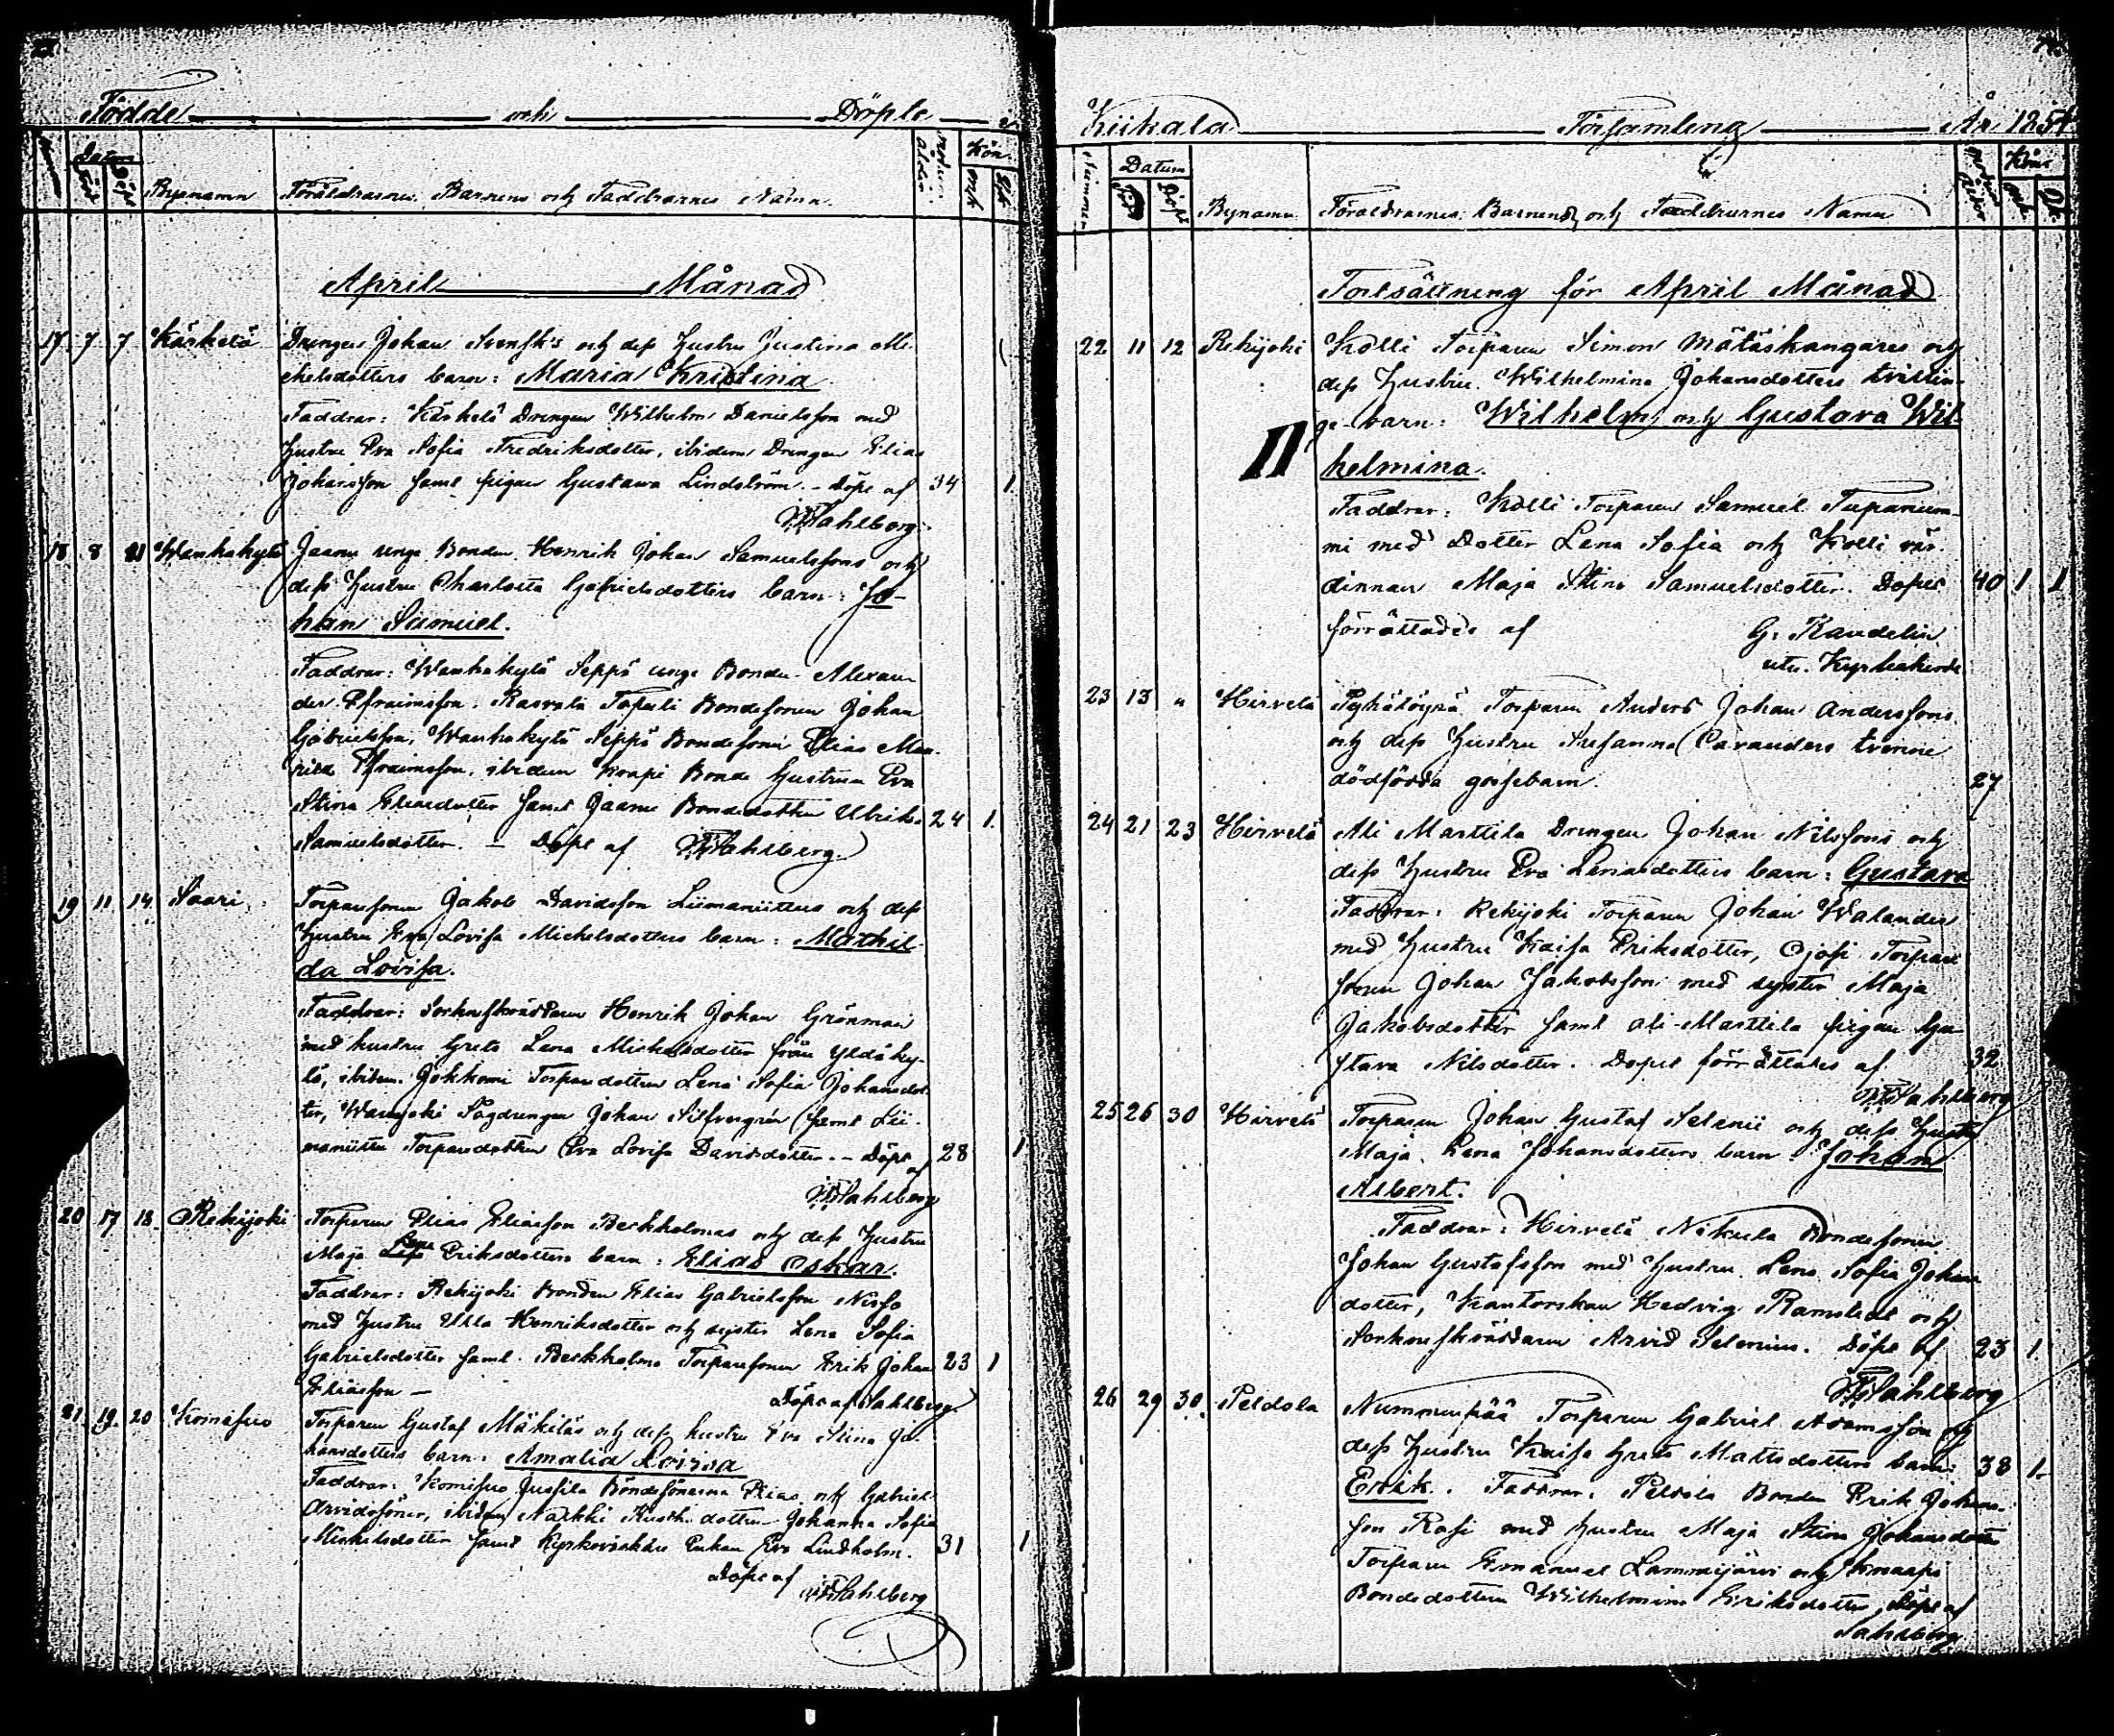 Födde och Döpte i
Datum
Född Döpt Bynamn Föräldrarnes Barnens och Faddrarnes Namn. Modrens ålder Kön. Mk Qk
April Månad
17. 7. 7 Kärkelä Drengen Johan Svensk's och dess hustru Justina Mi-
chelsdotters barn: Maria Kristina.
Faddrar: Kärkelä Drengen Wilhelm Danielsson med
hustru Eva Sofia Fredriksdotter, ibidem Drengen Elias
Johansson samt pigan Gustava Lindström. - Döpt af 34 1.
Sahlberg.
18 8 21 Wanhakylä Jaanu unge Bonden Henrik Johan Samuelssons och
dess hustru Charlotta Gabrielsdotters barn: Jo-
han Samuel.
Faddrar: Wanhakylä Seppä unge Bonden Alexan-
der Efraimsson. Rasvala Bondesonen Johan
Gabrielsson, Wanhakylä Seppä Bondesonen Elias
Efraimsson, ibidem Bonde hustrun Eva
Stina Eliedotter samt Jaanu Bondedottren Ulrika 24 1.
Samuelsdotter. - Döpt af Sahlberg.
19 11. 14. Saari Torparesonen Jakob Davidsson Liimaniittus och dess
hustru Eva Lovisa Michelsdotters barn: Mathil-
da Lovisa.
Faddrar: Sockneskräddaren Henrik Johan Grönman
med hustru Greta Lena Michelsdotter från Yldäky-
lä, ibidem Torparedottren Lena Sofia Johansdot-
ter, Drengen Johan Silfvergrén samt Lii-
maniittu Torparedottren Eva Lovisa Davidsdotter. - Döpt af 28 1
Sahlberg
20 17 18. Rekijoki Torparen Elias Eliasson Berkholmas och dess hustru
Maja Lena Eriksdotters barn: Elias Oskar.
Faddrar: Rekijoki Bonden Elias Gabrielsson
med hustru Ulla Henriksdotter och syster Lena Sofia
Gabrielsdotter samt Berkholms Torparesonen Erik Johan 23 1
Eliasson - Döpt af Sahlberg.
21. 19. 20 Komisuo Torparen Gustaf Mäkiläs och dess hustru Eva Stina Jo-
hansdotters barn: Amalia Lovisa
Faddrar: Komisuo Jussila Bondesönerna Elias och Gabriel
Arvidssöner, ibidem dottren Johanna Sofia
Michelsdotter samt Enkan Eva Lindholm. 31 1
Döpt af
Sahlberg
Kiikala Församling År 1854
Nummer Datum
Född Döpt Bynamn Föräldrarnes Barnens och Faddrarnes Namn Modrens ålder Kön Mk Qk
Fortsättning för April Månad
22 11 12 Rekijoki Kolli Torparen Simon Mätäskangares och
dess hustru Wilhelmina Johansdotters tvillin-
ge-barn: Wilhelm och Gustava Wil-
II helmina.
Faddrar: Kolli Torparen Samuel
med Dotter Lena Sofia och Kolli vär-
dinnan Maja Stina Samuelsdotter. Dopet 40 1 1
förrättades af G: Randelin
utn. Kyrkoherde
23 13 " Hirvelä Torparen Anders Johan Anderssons
och dess hustru Susanna Caranders tvenne
dödfödda gossebarn. 27
24 21 23 Hirvelä Ali Marttila Drengen Johan Nilssons och
dess hustru Eva Leniasdotters barn: Gustava
Faddrar: Rekijoki Torparen Johan Walander
med hustru Kaisa Eriksdotter, Torpare
sonen Johan Jakobsson med syster Maja
Jakobsdotter samt Ali-Marttila pigan Gu-
stava Nilsdotter. Dopet förrättades af 32
Sahlberg
25 26 30 Hirvelä Torparen Johan Gustaf Selenii och dess hustru
Maja Lena Johansdotters barn: Johan
Albert.
Faddrar: Hirvelä Nikula Bondesonen
Johan Gustafsson med hustru Lena Sofia Johans
dotter, Kantorskan Hedvig Ramstedt och
Sockneskräddaren Arvid Selenius. Döpt af 23 1.
Sahlberg
26 29 30. Peldola Nummenpää Torparen Gabriel Adamsson och
dess hustru Kaisa Greta Mattsdotters barn: 38 1.
Erik. Faddrar: Peldola Bonden Erik Johans-
son Rasi med hustru Maja Stina Johansdotter
Torparen Emanuel Lammijärvi och Knaapi
Bondedottren Wilhelmina Eriksdotter, Döpt af
Sahlberg.